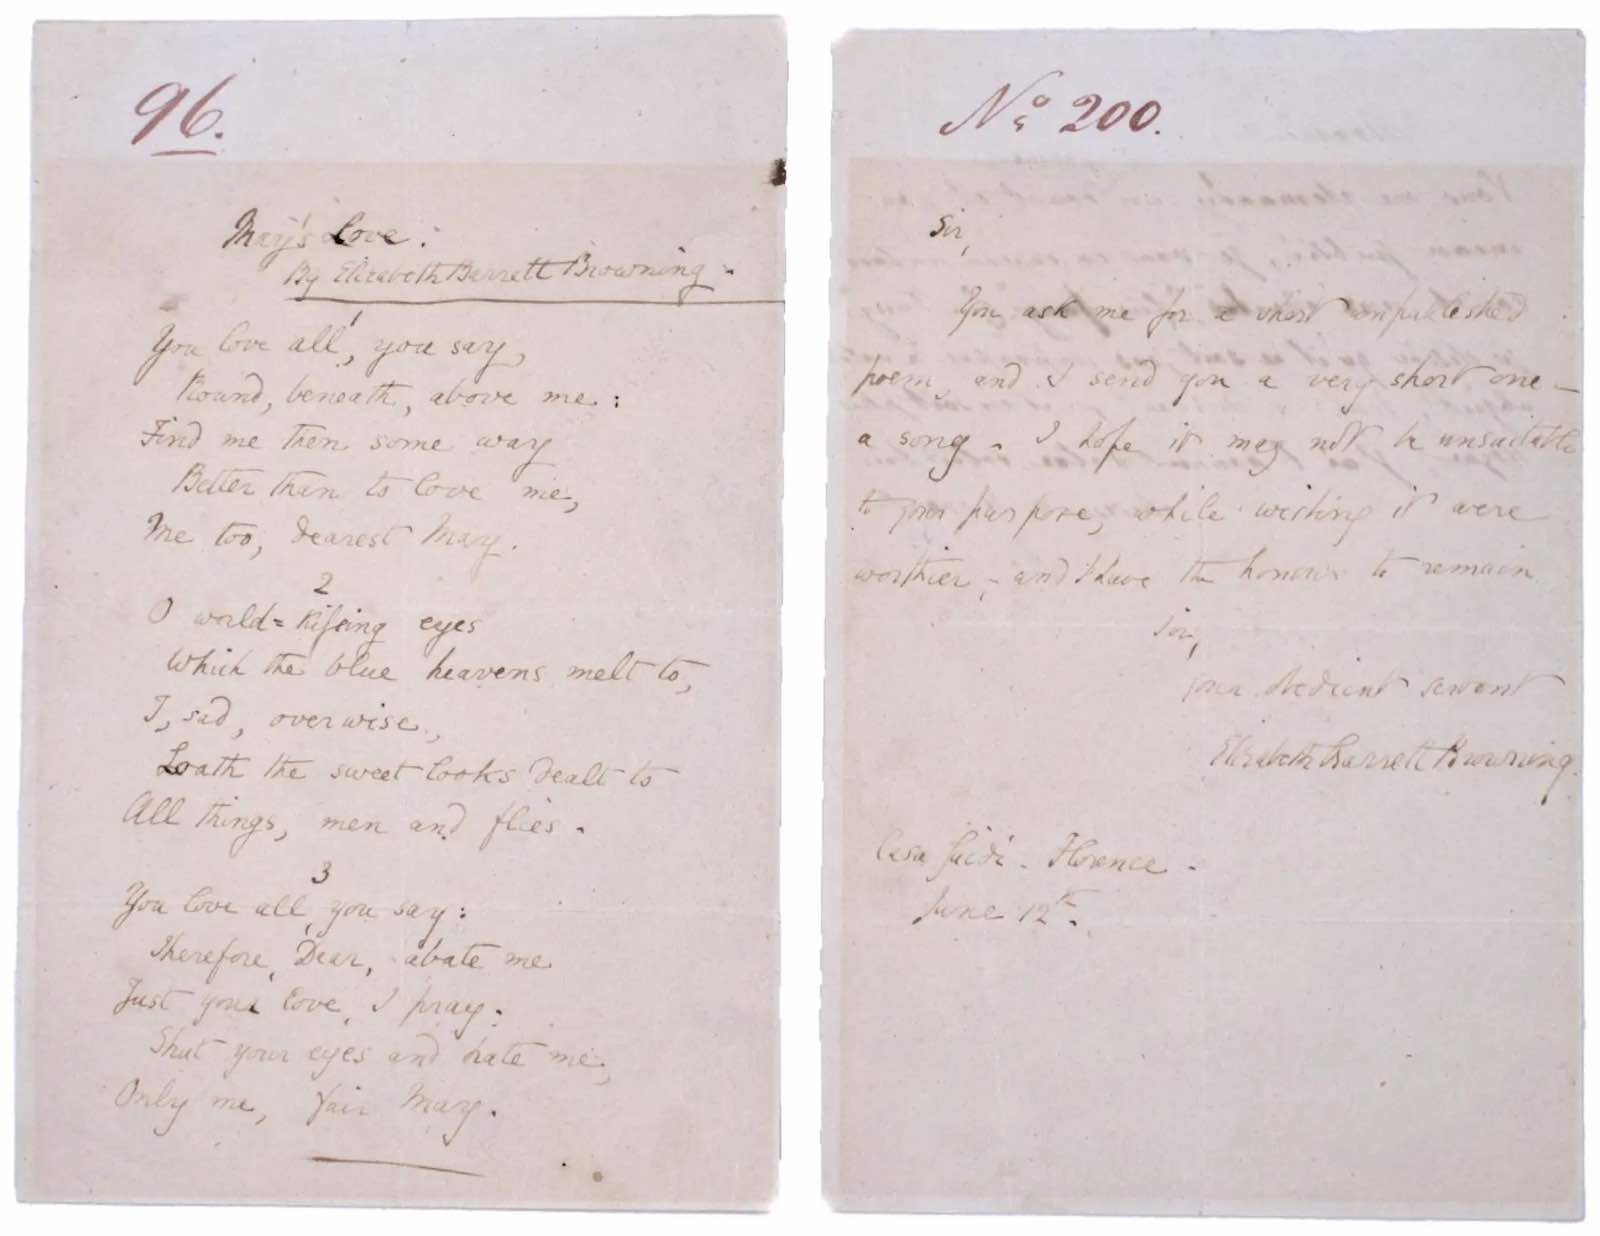 96.
May's Love.
By Elizabeth Barrett Browning.
1
You love all, you say,
Round, beneath, above me:
Find me then some way
Better than to love me,
Me too, dearest May.
2
O world-kissing eyes
Which the blue heavens melt to,
I, sad, overwise,
Loath the sweet looks dealt to
All things, men and flies.
3
You love all, you say:
Therefore, Dear, abate me
Just your love, I pray.
Shut your eyes and hate me,
Only me, fair May.
No. 200.
Sir,
You ask me for a short unpublished
poem, and I send you a very short one -
a song. I hope it may not be unsuitable
to your purpose, while wishing it were
worthier, - and I have the honour to remain
Sir,
your obedient servant
Elizabeth Barrett Browning.
Casa Guidi. Florence.
June 12th.